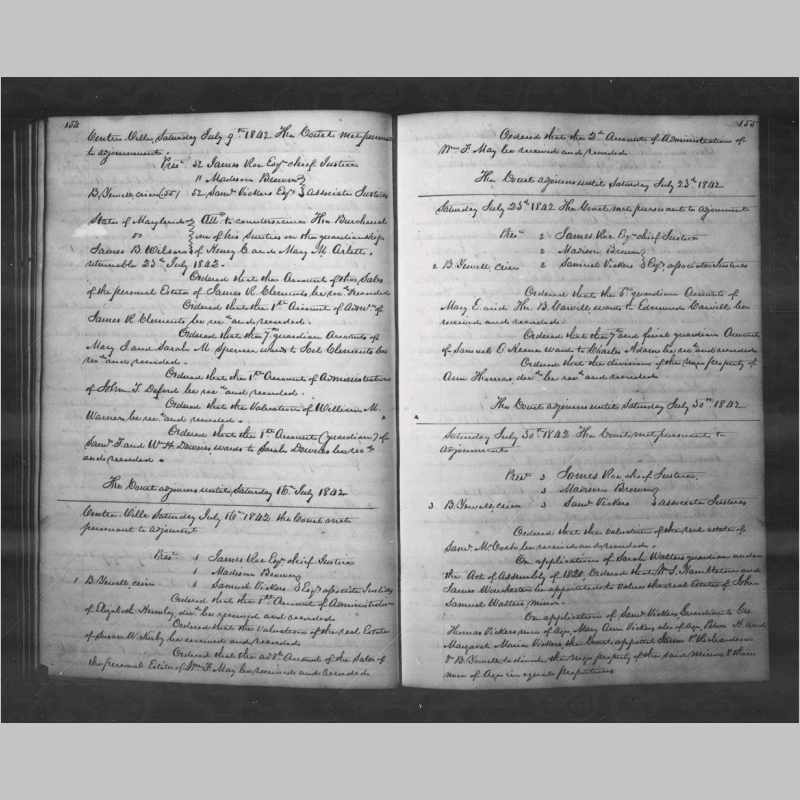 154
Centre Ville, Saturday July 9th 1842 The Court met pursuant
to adjournment.
Prest 52 James Roe Esqr chief Justice
" Madison Brown
B. Sewell, crier (50) 52 Saml Vickers Esqr } associate Justices
State of Maryland
vs
James B. Wilson
of Henry C and Mary M.
returnable 23d July 1842.
Ordered that the Account of the Sales
of the personal Estate of James R. Clements be recd & recorded
Ordered that the 1st Account of Admn of
James R Clements be recd and recorded.
Ordered that the 7th guardian Accounts of
Mary J and Sarah M Spencer wards to Joel Clements be
recd and recorded.
Ordered that the 1st Account of Administration
of John T. be recd and recorded.
Ordered that the Valuation of William M.
Warner be recd and recorded.
Ordered that the 1st Account (guardian) of
Saml T and Wm H. Downes wards to Sarah Downes be recd
and recorded.
The Court adjourns until Saturday 16th July 1842
Centre Ville Saturday July 16th 1842 the Court met
pursuant to adjournment
Prest 1 James Roe Esqr chief Justice
1 Madison Brown
1 B. Sewell, crier 1 Samuel Vickers } Esqr associate Justices
Ordered that the 1st Account of Administration
of Elizabeth decd be received and recorded
Ordered that the Valuation of the real Estate
of Susan be received and recorded
Ordered that the Account of the Sales of
the personal Estate of Wm F. May be received and recorded
155
Ordered that the 2d Account of Administration of
Wm F. May be received and recorded
The Court adjourns until Saturday July 23d 1842
Saturday July 23d 1842 The Court met pursuant to adjournment
Prest 2 James Roe Esqr chief Justice
2 Madison Brown
2 B. Sewell, crier 2 Samuel Vickers } Esqr associate Justices
Ordered that the 5th guardian Accounts of
Mary E. and Tho. B. Carvill wards to Edmund Carvill be
received and recorded.
Ordered that the 7th and final guardian Account
of Samuel C ward to Charles be recd and recorded
Ordered that the division of the negro property of
Ann Thomas, decd be recd and recorded
The Court adjourns until Saturday July 30th 1842
Saturday July 30th 1842 The Court met pursuant to
adjournment
Prest 3 James Roe chief Justice,
3 Madison Brown
3 B. Sewell, crier 3 Saml Vickers } associate Justices
Ordered that the valuation of the real estate of
Saml McCosh be received and recorded.
On application of Sarah Walters guardian under
the Act of Assembly of 1820, Ordered that Wm S. Hambleton and
James be appointed to value the real Estate of John
Samuel Walters minor.
On application of Saml Vickers Guardian to Geo
Thomas Vickers now of age, Mary Ann Vickers also of age, H. and
Margaret Maria Vickers the Court appoint James P. Richardson
& B. Sewell to divide the negro property of the said minors & those
now of Age in equal proportions